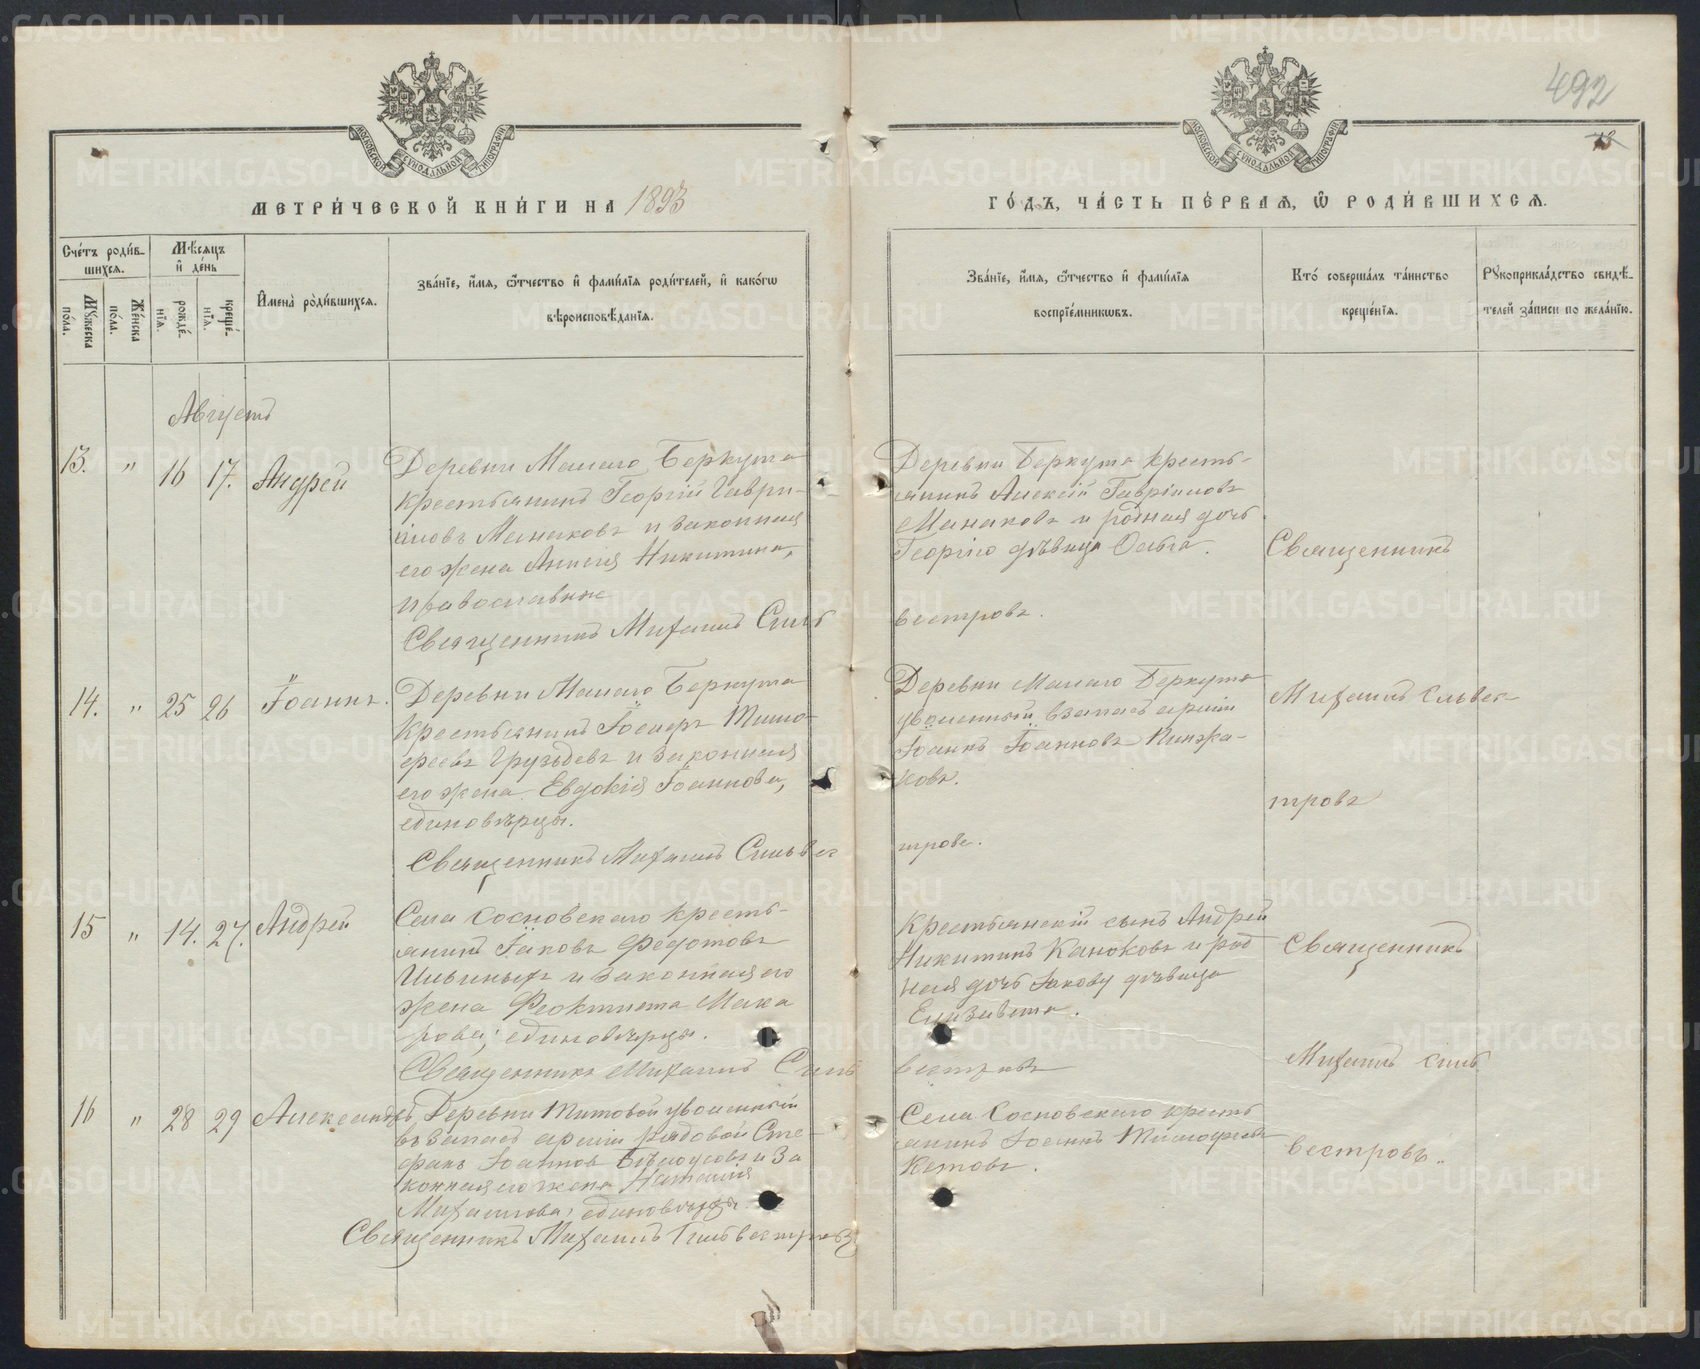 492
МЕТРИ́ЧЕСКОЙ КНИ́ГИ НА 1893
ГО́ДЪ, ЧА́СТЬ ПЕ́РВАЯ, Ѽ РОДИ́ВШИХСЯ.
Сче́тъ роди́в-
шихся.
Мѣ́сяцъ
и҆ де́нь
Мꙋ́жеска
по́ла.
Же́нска
по́ла.
рожде́-
нїя.
креще́-
нїя.
И҆мена̀ роди́вшихся.
Зва́нїе, и҆́мя, ѻ҆́тчество и҆ фами́лїя роди́телей, и҆ како́гѡ
вѣроисповѣ́данїя.
Зва́нїе, и҆́мя, ѻ҆́тчество и҆ фами́лїя
воспрїе́мникѡвъ.
Кто̀ соверша́лъ та́инство
креще́нїя.
Рꙋкоприкла́дство свидѣ́-
телей за́писи по жела́нїю.
Августъ
13. " 16 17. Андрей
Деревни Малаго Беркута
крестьянинъ Георгій Гаври-
иловъ Манаковъ и законная
его жена Никитина,
православные
Священникъ Михаилъ Сильвестровъ.
Деревни Беркута кресть-
янинъ Алексій Гавріиловъ
Манаковъ и родная дочь
Георгію дѣвица Ольга.
Священникъ
14. " 25 26 Іоаннъ.
Деревни Малаго Беркута
крестьянинъ Тимо-
феевъ Груздевъ и законная
его жена Евдокія Іоаннова,
единовѣрцы.
Священникъ Михаилъ Сильвестровъ.
Деревни Малаго Беркута
уволенный въ запасъ арміи
Іоаннъ Іоанновъ
Михаилъ Сильвес-
тровъ
15 " 14. 27. Андрей
Села Сосновскаго кресть-
янинъ Іаковъ Федотовъ
Ильиныхъ и законная его
жена Феоктиста Мака
рова, единовѣрцы.
Священникъ Михаилъ Сильвестровъ
Крестьянскій сынъ Андрей
Никитинъ Канюковъ и род
ная дочь Іакову дѣвица
Елизавета.
Священникъ
Михаилъ Силь
16 " 28 29 Александръ
Деревни Титовой уволенный
въ запасъ арміи рядовой Сте-
фанъ Іоанновъ Бѣлоусовъ и за
конная его жена Наталія
Михаилова, единовѣрцы.
Священникъ Михаилъ Сильвестровъ
Села Сосновскаго кресть
янинъ Іоаннъ Тимофеевъ
Кетовъ.
вестровъ.
METRIKI.GASO-URAL.RU